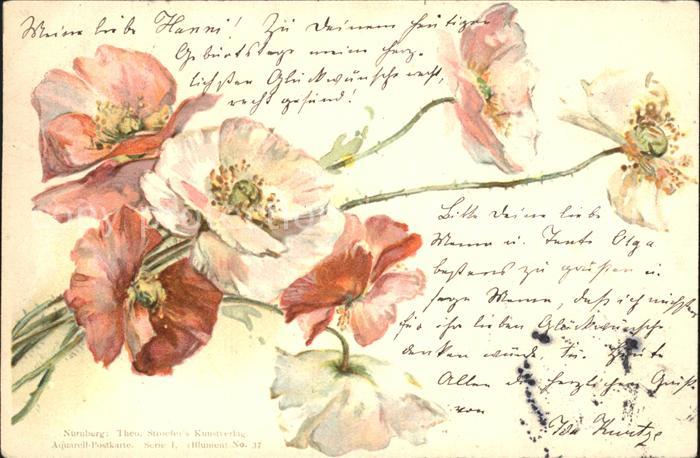 Meine liebe Hanni! Zu Deinem heutigen
Geburtstage meine herz-
lichsten Glückwünsche recht,
recht gesund!
Bitte Deine liebe
Mama u. Tante Olga
bestens zu grüßen u.
sage Mama, daß ich nächstens
für ihre lieben Glückwünsche
danken würde. Für heute
Allen die herzlichen Grüße
von
Ida
Nürnberg: Theo. Stroefer's Kunstverlag.
Aquarell-Postkarte. Serie I. (Blumen) No. 37